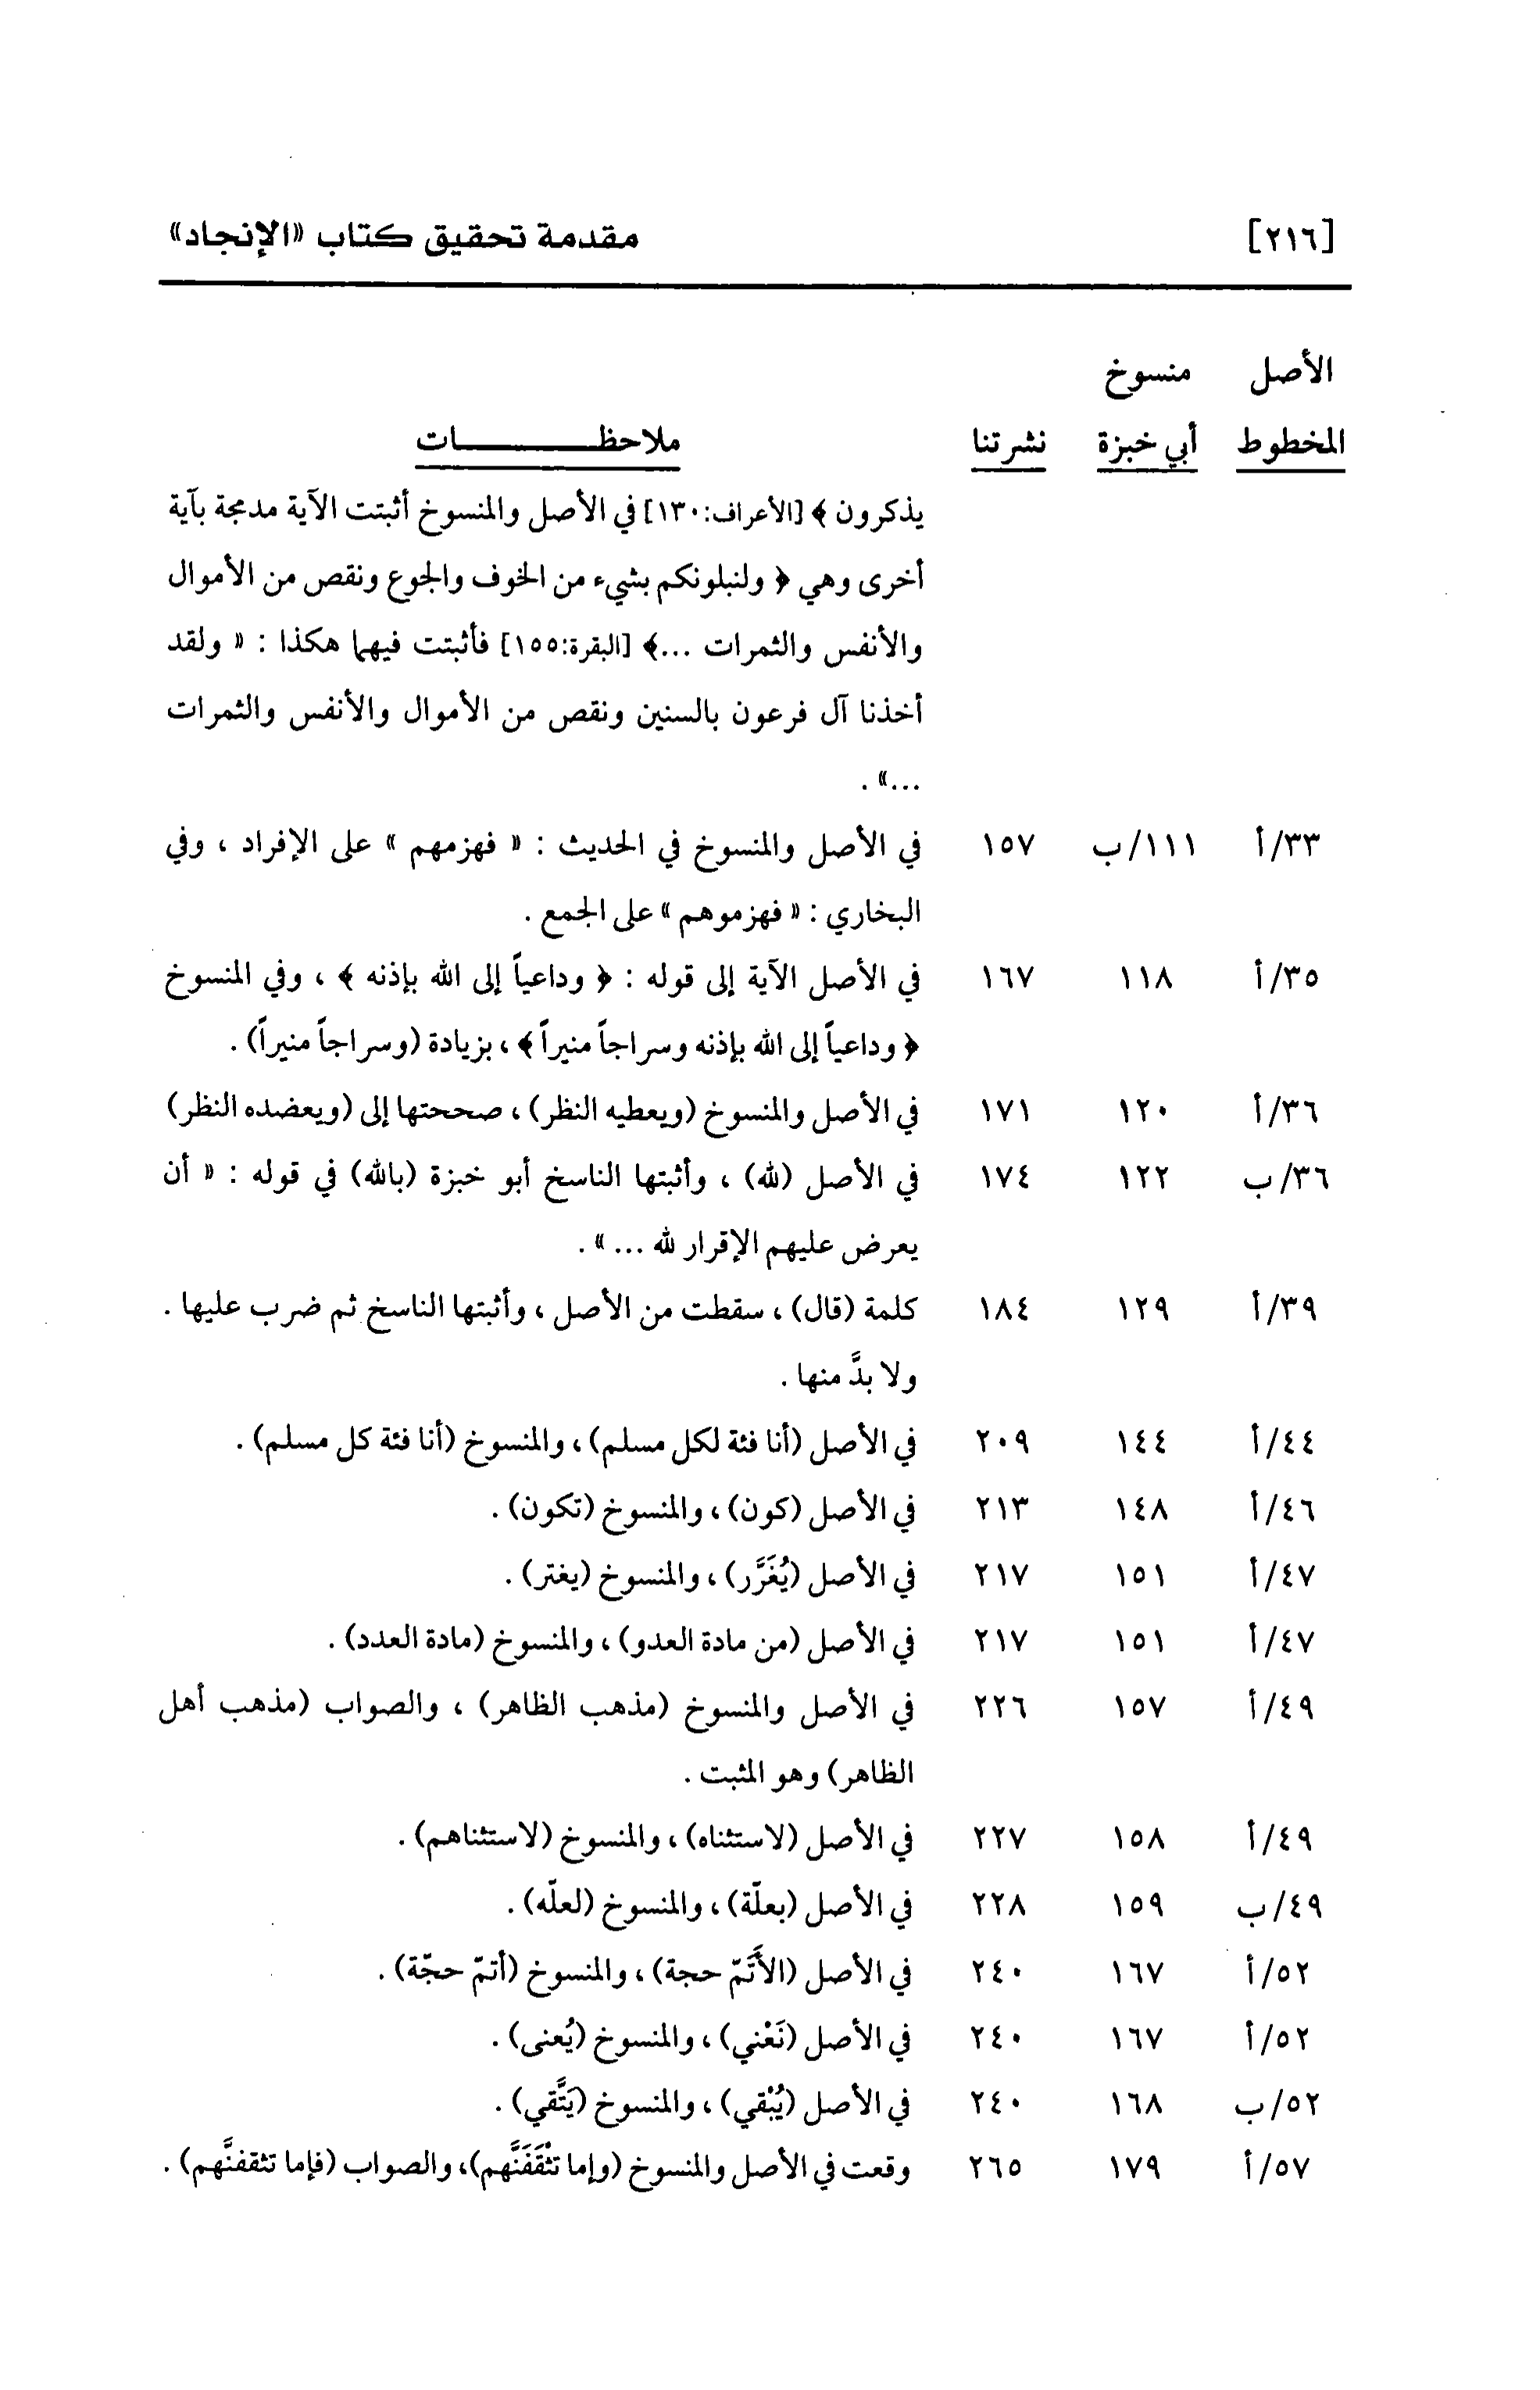 [٢١٦] مقدمة تحقيق كتاب «الإنجاد»
الأصل منسوخ
المخطوط أبي خبزة نشرتنا ملاحظـــــــات
يذكرون ﴾ [الأعراف:١٣٠] في الأصل والمنسوخ أثبتت الآية مدمجة بآية
أخرى وهي ﴿ ولنبلونكم بشيء من الخوف والجوع ونقص من الأموال
والأنفس والثمرات ...﴾ [البقرة:١٥٥] فأثبتت فيهما هكذا : « ولقد
أخذنا آل فرعون بالسنين ونقص من الأموال والأنفس والثمرات
...» .
٣٣/أ ١١١/ب ١٥٧ في الأصل والمنسوخ في الحديث : « فهزمهم » على الإفراد ، وفي
البخاري : « فهزموهم » على الجمع .
٣٥/أ ١١٨ ١٦٧ في الأصل الآية إلى قوله : ﴿ وداعياً إلى الله بإذنه ﴾ ، وفي المنسوخ
﴿ وداعياً إلى الله بإذنه وسراجاً منيراً ﴾ ، بزيادة (وسراجاً منيراً) .
٣٦/أ ١٢٠ ١٧١ في الأصل والمنسوخ (ويعطيه النظر) ، صححتها إلى (ويعضده النظر)
٣٦/ب ١٢٢ ١٧٤ في الأصل (لله) ، وأثبتها الناسخ أبو خبزة (بالله) في قوله : « أن
يعرض عليهم الإقرار لله ... » .
٣٩/أ ١٢٩ ١٨٤ كلمة (قال) ، سقطت من الأصل ، وأثبتها الناسخ ثم ضرب عليها .
ولا بدَّ منها .
٤٤/أ ١٤٤ ٢٠٩ في الأصل (أنا فئة لكل مسلم) ، والمنسوخ (أنا فئة كل مسلم) .
٤٦/أ ١٤٨ ٢١٣ في الأصل (كون) ، والمنسوخ (تكون) .
٤٧/أ ١٥١ ٢١٧ في الأصل (يُغَرَّر) ، والمنسوخ (يغتر) .
٤٧/أ ١٥١ ٢١٧ في الأصل (من مادة العدو) ، والمنسوخ (مادة العدد) .
٤٩/أ ١٥٧ ٢٢٦ في الأصل والمنسوخ (مذهب الظاهر) ، والصواب (مذهب أهل
الظاهر) وهو المثبت .
٤٩/أ ١٥٨ ٢٢٧ في الأصل (لاستثناه) ، والمنسوخ (لاستثناهم) .
٤٩/ب ١٥٩ ٢٢٨ في الأصل (بعلّة) ، والمنسوخ (لعلّه) .
٥٢/أ ١٦٧ ٢٤٠ في الأصل (الأَتَمّ حجة) ، والمنسوخ (أتمّ حجّة) .
٥٢/أ ١٦٧ ٢٤٠ في الأصل (نَعْني) ، والمنسوخ (يُعنى) .
٥٢/ب ١٦٨ ٢٤٠ في الأصل (يُبْقي) ، والمنسوخ (يَتَّقي) .
٥٧/أ ١٧٩ ٢٦٥ وقعت في الأصل والمنسوخ (وإما تثْقَفَنَّهم)، والصواب (فإما تثقفنَّهم) .